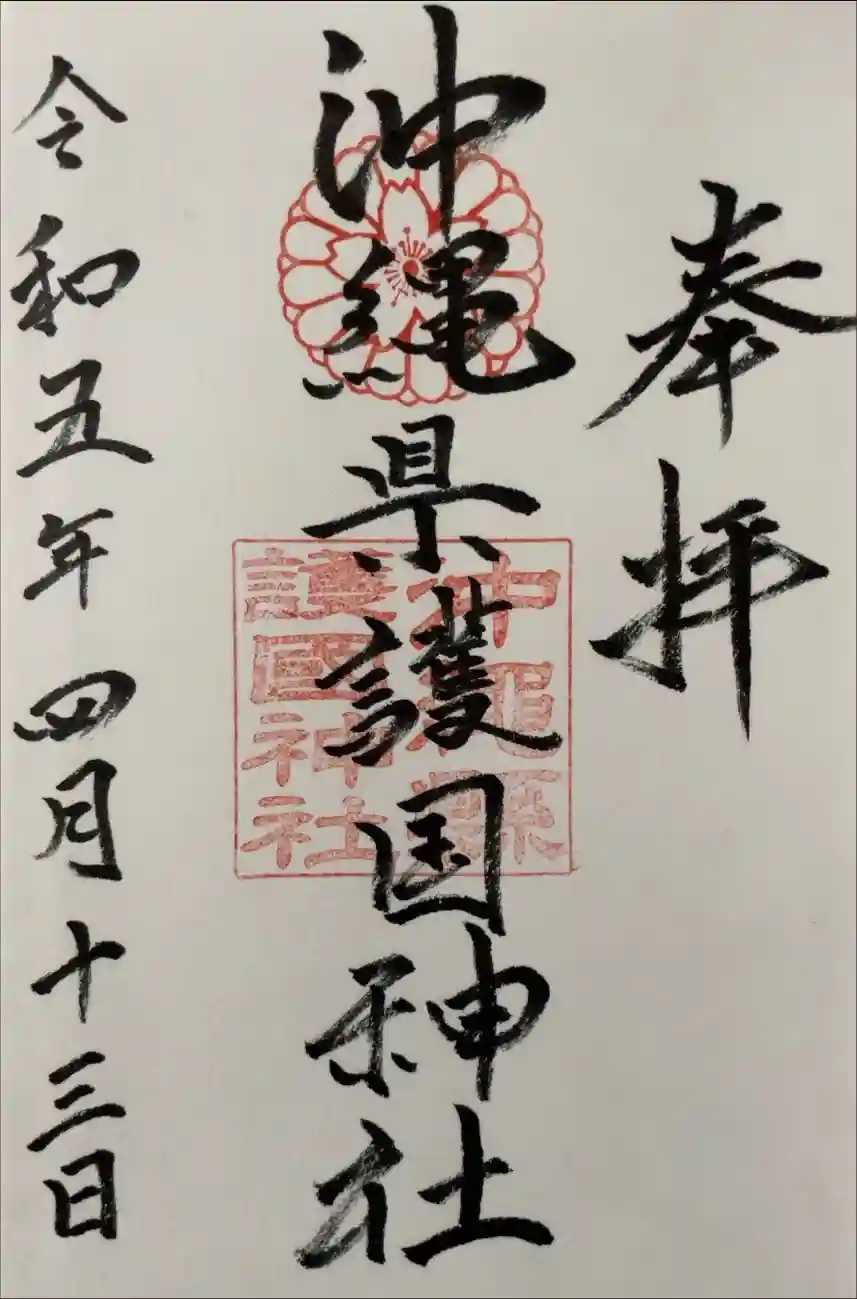 奉拝
沖縄県護国神社
沖縄縣
護國神社
令和五年四月十三日